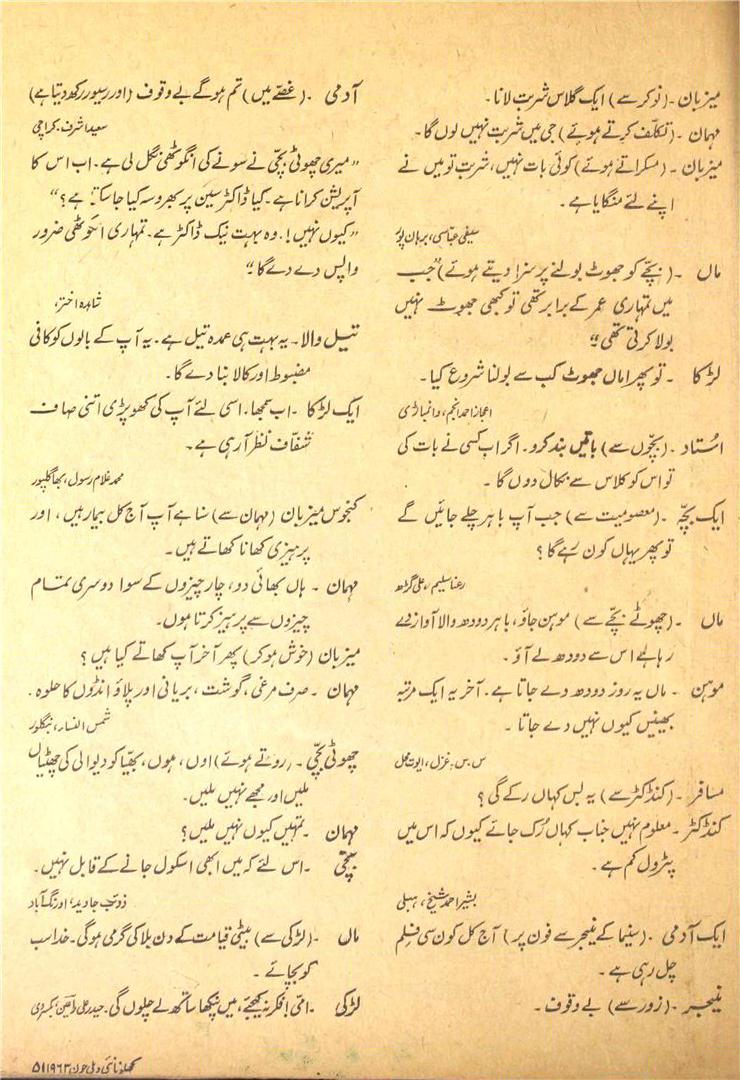 میزبان ۔ (نوکر سے) ایک گلاس شربت لانا۔
مہمان ۔ (تکلّف کرتے ہوئے) جی میں شربت نہیں لوں گا۔
میزبان ۔ (مسکراتے ہوئے) کوئی بات نہیں، شربت تو میں نے
اپنے لئے منگایا ہے۔
سیفی عباسی، برہان پور
ماں ۔ (بچّے کو جھوٹ بولنے پر سزا دیتے ہوئے) "جب
میں تمہاری عمر کے برابر تھی تو کبھی جھوٹ نہیں
بولا کرتی تھی"
لڑکا ۔ تو پھر اماں جھوٹ کب سے بولنا شروع کیا۔
اعجاز احمد انجم، وانمباڑی
اُستاد ۔ (بچّوں سے) باتیں بند کرو۔ اگر اب کسی نے بات کی
تو اس کو کلاس سے نکال دوں گا۔
ایک بچّہ ۔ (معصومیت سے) جب آپ باہر چلے جائیں گے
تو پھر یہاں کون رہے گا؟
رعنا سلیم، علی گڑھ
ماں ۔ (چھوٹے بچّے سے) موہن جاؤ، باہر دودھ والا آواز دے
رہا ہے اس سے دودھ لے آؤ۔
موہن ۔ ماں یہ روز دودھ دے جاتا ہے۔ آخر یہ ایک مرتبہ
بھینس کیوں نہیں دے جاتا۔
س۔س۔ غزل، ایوت محل
مسافر ۔ (کنڈکٹر سے) یہ بس کہاں رکے گی؟
کنڈکٹر ۔ معلوم نہیں جناب کہاں رُک جائے کیوں کہ اس میں
پٹرول کم ہے۔
بشیر احمد شیخ، ہبلی
ایک آدمی ۔ (سینما کے منیجر سے فون پر) آج کل کون سی فلم
چل رہی ہے۔
منیجر ۔ (زور سے) بے وقوف۔
آدمی ۔ (غصّے میں) تم ہوگے بے وقوف (اور رسیور رکھ دیتا ہے)
سعید اشرف۔ کراچی
"میری چھوٹی بچّی نے سونے کی انگوٹھی نگل لی ہے۔ اب اس کا
آپریشن کرانا ہے۔ کیا ڈاکٹر سین پر بھروسہ کیا جاسکتا ہے؟"
"کیوں نہیں!۔ وہ بہت نیک ڈاکٹر ہے۔ تمہاری انگوٹھی ضرور
واپس دے دے گا"
شاہدہ اختر،
تیل والا ۔ یہ بہت ہی عمدہ تیل ہے۔ یہ آپ کے بالوں کو کافی
مضبوط اور کالا بنا دے گا۔
ایک لڑکا ۔ اب سمجھا۔ اسی لئے آپ کی کھوپڑی اتنی صاف
شفّاف نظر آرہی ہے۔
محمد غلام رسول، بھاگلپور
کنجوس میزبان (مہمان سے) سنا ہے آپ آج کل بیمار ہیں، اور
پرہیزی کھانا کھاتے ہیں۔
مہمان ۔ ہاں بھائی دو، چار چیزوں کے سوا دوسری تمام
چیزوں سے پرہیز کرتا ہوں۔
میزبان (خوش ہو کر) پھر آخر آپ کھاتے کیا ہیں؟
مہمان ۔ صرف مرغی، گوشت، بریانی اور پلاؤ انڈوں کا حلوہ۔
شمس النساء، بنگلور
چھوٹی بچّی ۔ (روتے ہوئے) اوں، ہوں، بھیّا کو دیوالی کی چھٹیاں
ملیں اور مجھے نہیں ملیں۔
مہمان ۔ تمہیں کیوں نہیں ملیں؟
بچّی ۔ اس لئے کہ میں ابھی اسکول جانے کے قابل نہیں۔
جاوید، اورنگ آباد
ماں ۔ (لڑکی سے) بیٹی قیامت کے دن بلا کی گرمی ہوگی۔ خدا سب
کو بچائے۔
لڑکی ۔ امّی! فکر نہ کیجئے، میں پنکھا ساتھ لے چلوں گی۔ حیدر علی
کھلونا نئی دہلی جون ۱۹۶۳ ۵۱